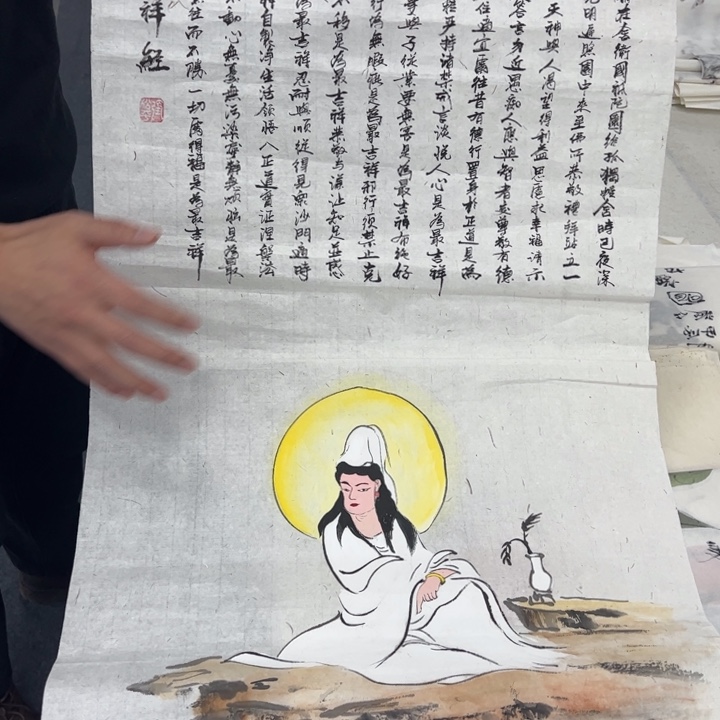 在舍衛國祇陀園給孤獨精舍時已夜深
光明遍照園中來至佛所恭敬禮拜站立一
天神與人渴望得利益思慮求幸福請示
答言勿近愚痴人應與智者交尊敬有德
住適宜處往昔有德行置身於正道是為
嚴持諸禁戒言談悅人心是為最吉祥
與子從業要無害是為最吉祥布施好
行為無瑕疵是為最吉祥邪行須禁止克
不移是為最吉祥恭敬與謙讓知足並感
為最吉祥忍耐與順從得見眾沙門適時
自製淨生活領悟八正道實證涅槃法
動心無憂無污染寧靜無煩惱是為最
往而不勝一切處得福是為最吉祥
祥經